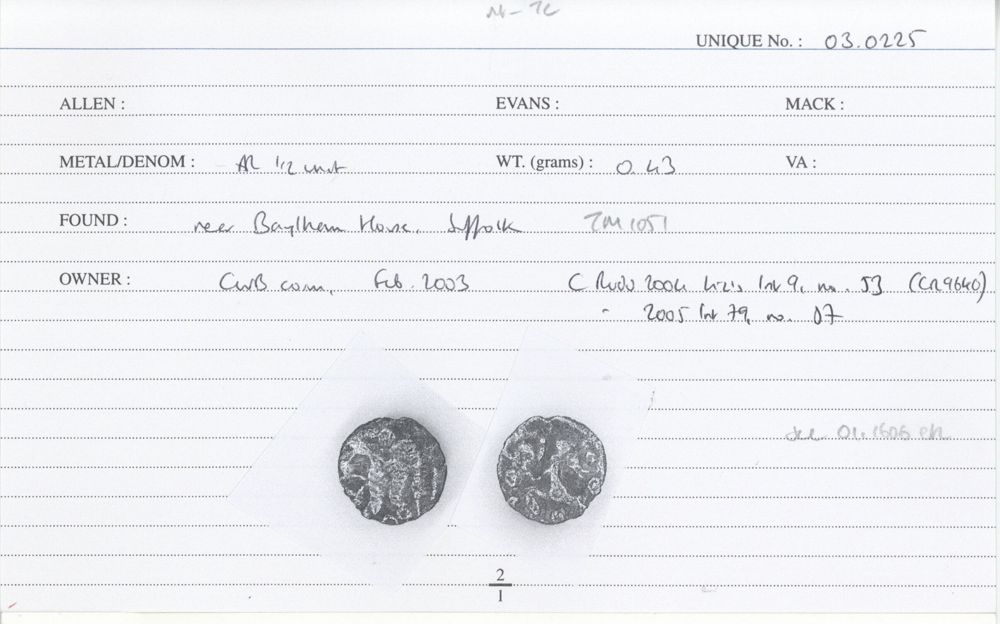 UNIQUE No. : 03.0225
ALLEN : EVANS : MACK :
METAL/DENOM : AR 1/2 unit WT. (grams) : 0.43 VA :
FOUND : near Baylham House, Suffolk TM1051
OWNER : CWB com, Feb. 2003 C Rudd 2004 no. 53 (CR9640)
" 2005 list 79, no. 07
see 01.1606
2
1